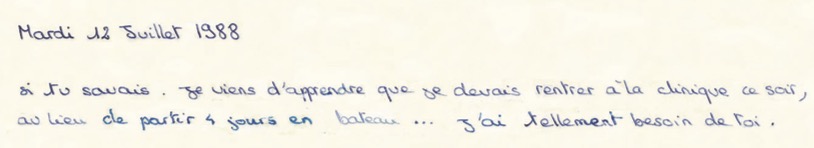 Mardi 12 Juillet 1988
si tu savais. je viens d'apprendre que je devais rentrer à la clinique ce soir,
au lieu de partir 4 jours en bateau... j'ai tellement besoin de toi.